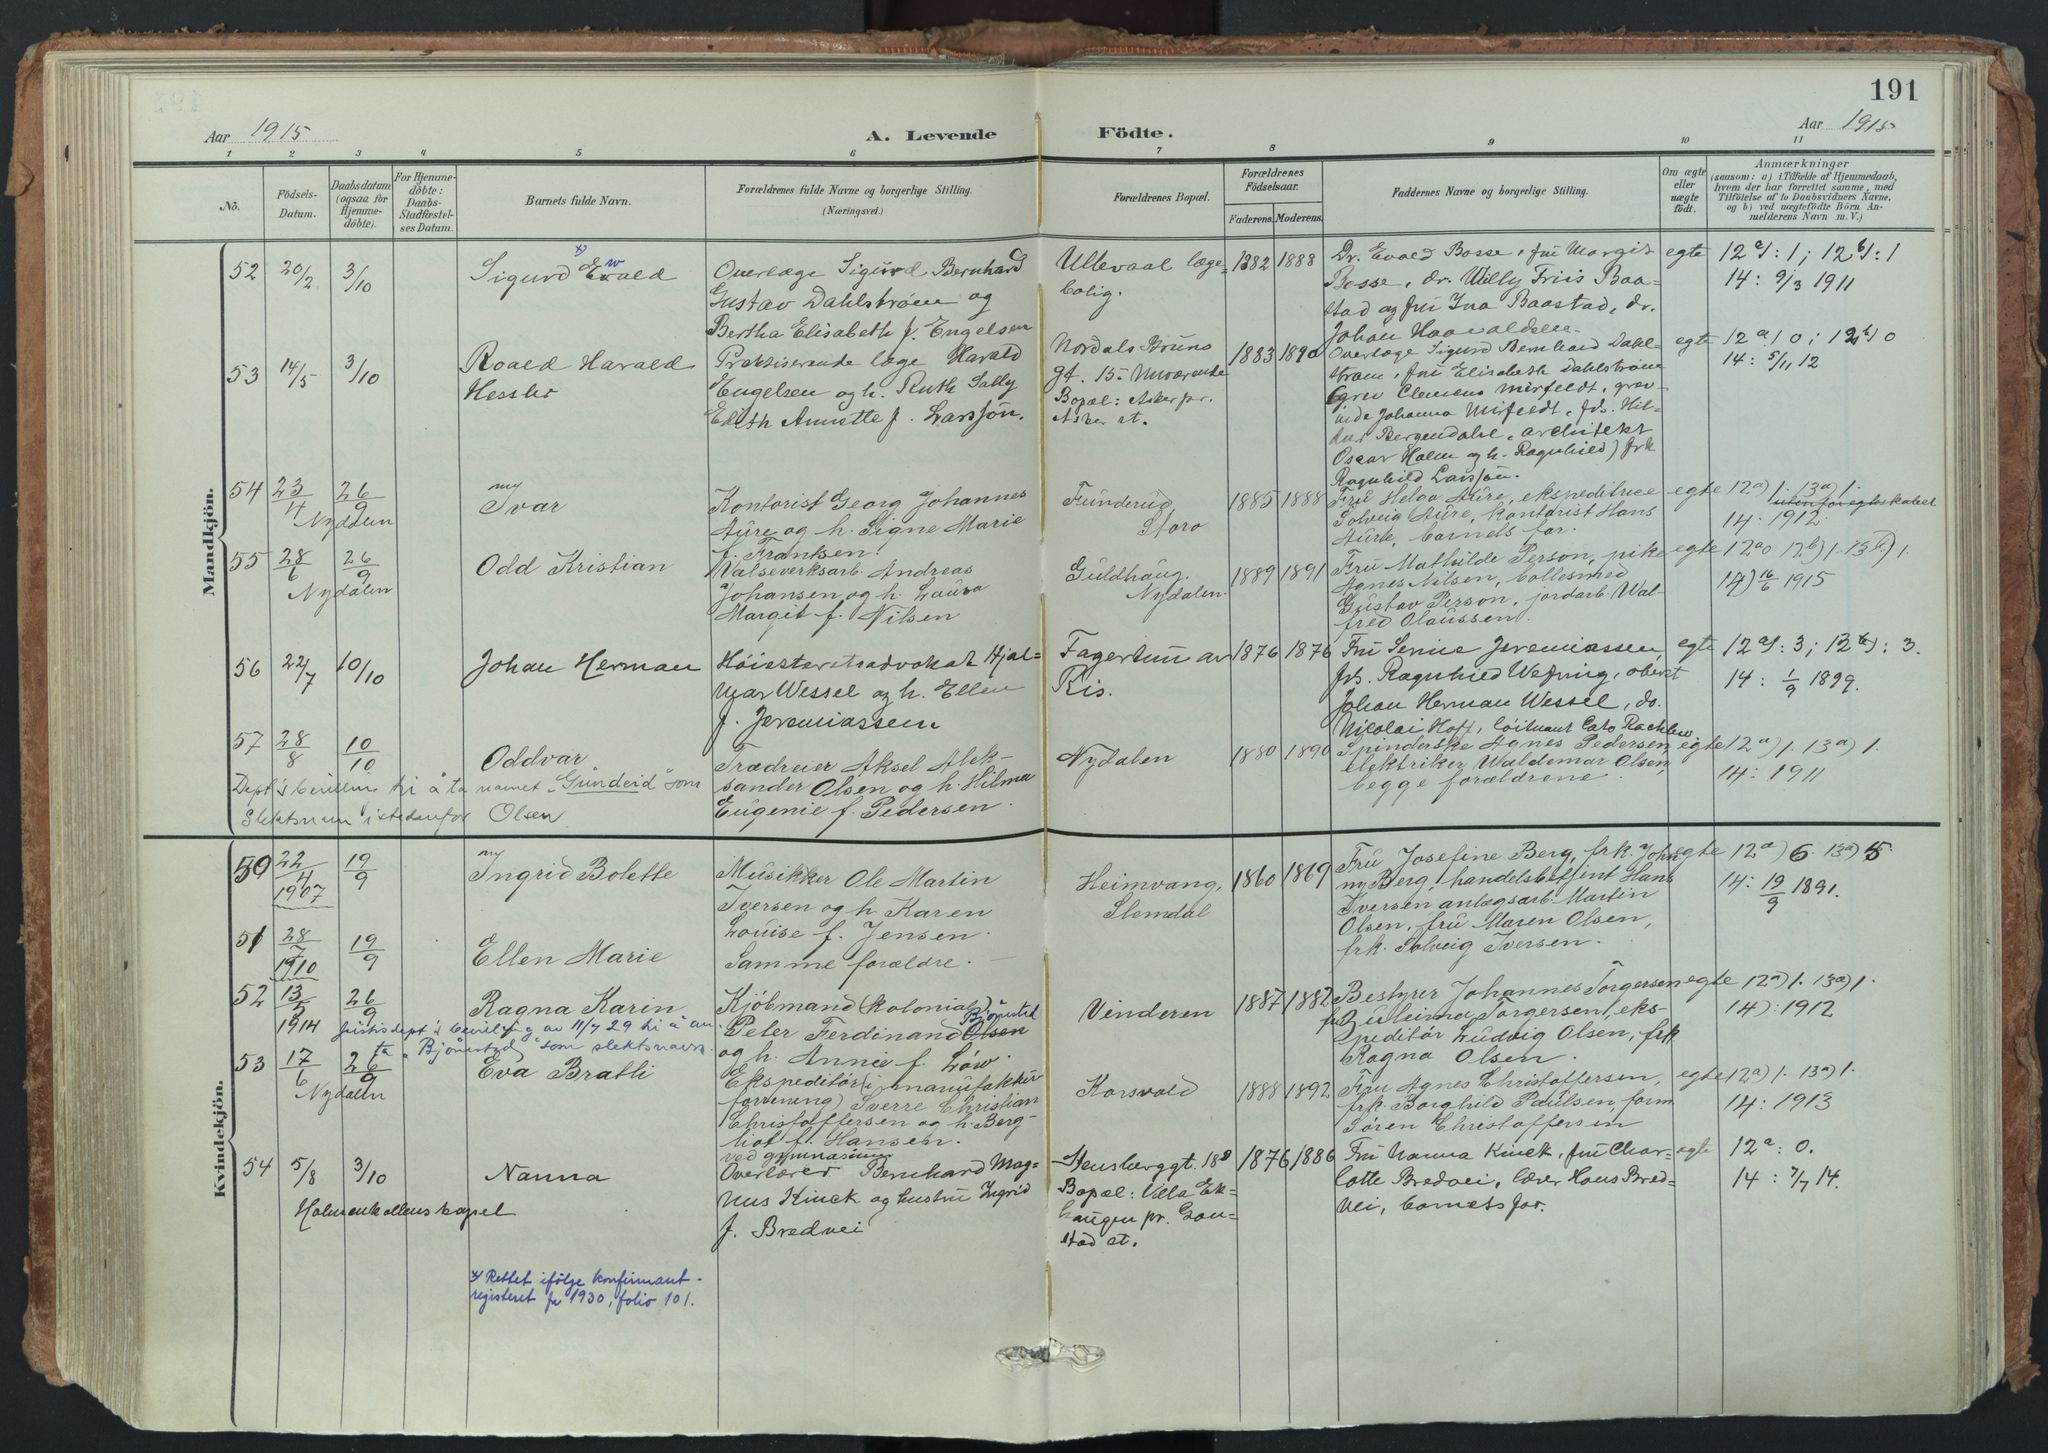 191
Aar 1915 A. Levende Födte. Aar 1915
1 2 3 4 5 6 7 8 9 10 11
No.
Födsels-
Datum.
Daabsdatum
(ogsaa for
Hjemme-
döbte).
For Hjemme-
döbte:
Daabs-
Stadfæstel-
ses Datum.
Barnets fulde Navn.
Forældrenes fulde Navne og borgerlige Stilling.
(Næringsvei.)
Forældrenes Bopæl.
Forældrenes
Födselsaar.
Faderens. Moderens.
Faddernes Navne og borgerlige Stilling.
Om ægte
eller
uægte
födt.
Anmærkninger
(saasom: a) i Tilfælde af Hjemmedaab,
hvem der har forrettet samme, med
Tilföielse af to Daabsvidners Navne,
og b) ved uægtefödte Börn An-
melderens Navn m. V.)
Mandkjön.
52 20/2 3/10 Sigurd Ewald
Overlæge Sigurd Bernhard
Gustav Dahlstrøm og
Bertha Elisabeth f. Engelsen
Ullevaal læge-
bolig.
1882 1888
Dr. Evald Bosse, fru Margit
Bosse, dr. Willy Friis Baa-
stad og fru Ina Baastad, dr.
Johan Haavaldsen
egte
12 a): 1; 12 b): 1
14: 9/3 1911
53 14/5 3/10 Roald Harald
Hessler
Praktiserende læge Harald
Engelsen og h. Ruth Sally
Edith Annette f. Larssøn.
Nordals Bruns
gt. 15. Nuværende
Bopæl: Asker pr.
Asker st.
1883 1890
Overlæge Sigurd Bernhard Dahl-
strøm, fru Elisabeth Dahlstrøm
Grev Clemens Mirfeldt, grev-
inde Johanna Mirfeldt, frk. Hil-
dur Bergendahl, architekt
Oscar Holm og h. Ragnhild) frk
Ragnhild Larssøn.
egte
12 a) 0; 12 b) 0
14: 5/11 12
54 23/4 26/9 my Ivar
Nydalen
Kontorist Georg Johannes
Aure og h. Signe Marie
f. Frantsen.
Funderud,
Storo
1885 1888
Fru Helga Aure, ekspeditrice
Solveig Aure, kontorist Hans
Aure, barnets far.
egte
12 a) 1. 13 a) 1.
14: 1912.
55 28/6 26/9 Odd Kristian
Nydalen
Valseverksarb. Andreas
Johansen og h. Laura
Margit f. Nilsen
Guldhaug.
Nydalen.
1889 1891
Fru Mathilde Person, pike
Agnes Nilsen, boltesmed
Gustav Person, jordarb. Wal-
fred Olaussen.
egte
12 a) 0 12 b) 1. 13 b) 1.
14) 16/6 1915
56 22/7 10/10 Johan Herman
Høiesteretsadvokat Hjal-
mar Wessel og h. Ellen
f. Jeremiassen
Fagertun av
Ris.
1876 1876
Fru Senie Jeremiassen,
frk. Ragnhild Wefring, oberst
Johan Herman Wessel, do.
Nicolai Hoff, löitnant Cato Rachlew
egte
12 a): 3; 12 b): 3.
14: 1/9 1899.
57 28/8 10/10 Oddvar
Trædreier Aksel Alek-
sander Olsen og h. Hilma
Eugenie f. Pedersen.
Nydalen
1880 1890
Spinderske Agnes Pedersen,
elektriker Waldemar Olsen,
begge forældrene.
egte
12 a) 1. 13 a) 1.
14: 1911
Dept's bevilln. til å ta navnet "Gundeid" som
slektsnavn istedenfor Olsen
Kvindekjön.
50 22/4 1907 19/9 my Ingrid Bolette
Musikker Ole Martin
Iversen og h. Karen
Louise f. Jensen.
Heimvang,
Slemdal
1860 1869
Fru Josefine Berg, frk. John-
ny Berg, handelsbetjent Hans
Iversen anlægsarb. Martin
Olsen, fru Maren Olsen,
frk. Solveig Iversen.
egte
12 a) 6. 13 a) 5
14: 19/9 1891.
51 28/7 1910 19/9 Ellen Marie
Samme forældre.
52 13/5 1914 26/9 Ragna Karin
Kjöbmand (kolonial)
Peter Ferdinand Olsen Bjönstad
og h. Annie f. Löw.
Vinderen
1887 1882
Bestyrer Johannes Torgersen
fru Juleima Torgersen, eks-
peditör Ludvig Olsen, frk.
Ragna Olsen.
egte
12 a) 1. 13 a) 1.
14): 1912
Justisdept's bevilling av 11/7 29 til å an-
ta "Bjönstad" som slektsnavn.
53 17/6 26/9 Eva Bratli
Nydalen
Ekspeditör (i manufaktur
forretning) Sverre Christian
Christoffersen og h. Berg-
liot f. Hansen.
Korsvold
1888 1892
Fru Agnes Christoffersen,
frk. Borghild Paulsen, form.
Sören Christoffersen
egte
12 a) 1. 13 a) 1.
14: 1913
54 5/8 3/10 Nanna
Holmenkollens kapel
ved gymnasium
Overlærer Bernhard Mag-
nus Kinck og hustru Ingrid
f. Bredvei
Stensberggt. 18
Bopæl: Villa Ek-
haugen pr. Gau-
stad st.
1876 1886
Fru Nanna Kinck, fru Char-
lotte Bredvei, lærer Hans Bred-
vei, barnets far.
egte
12 a: 0.
14: 7/7 14.
x) Rettet ifölge konfirmant-
registeret for 1930, folio 101.